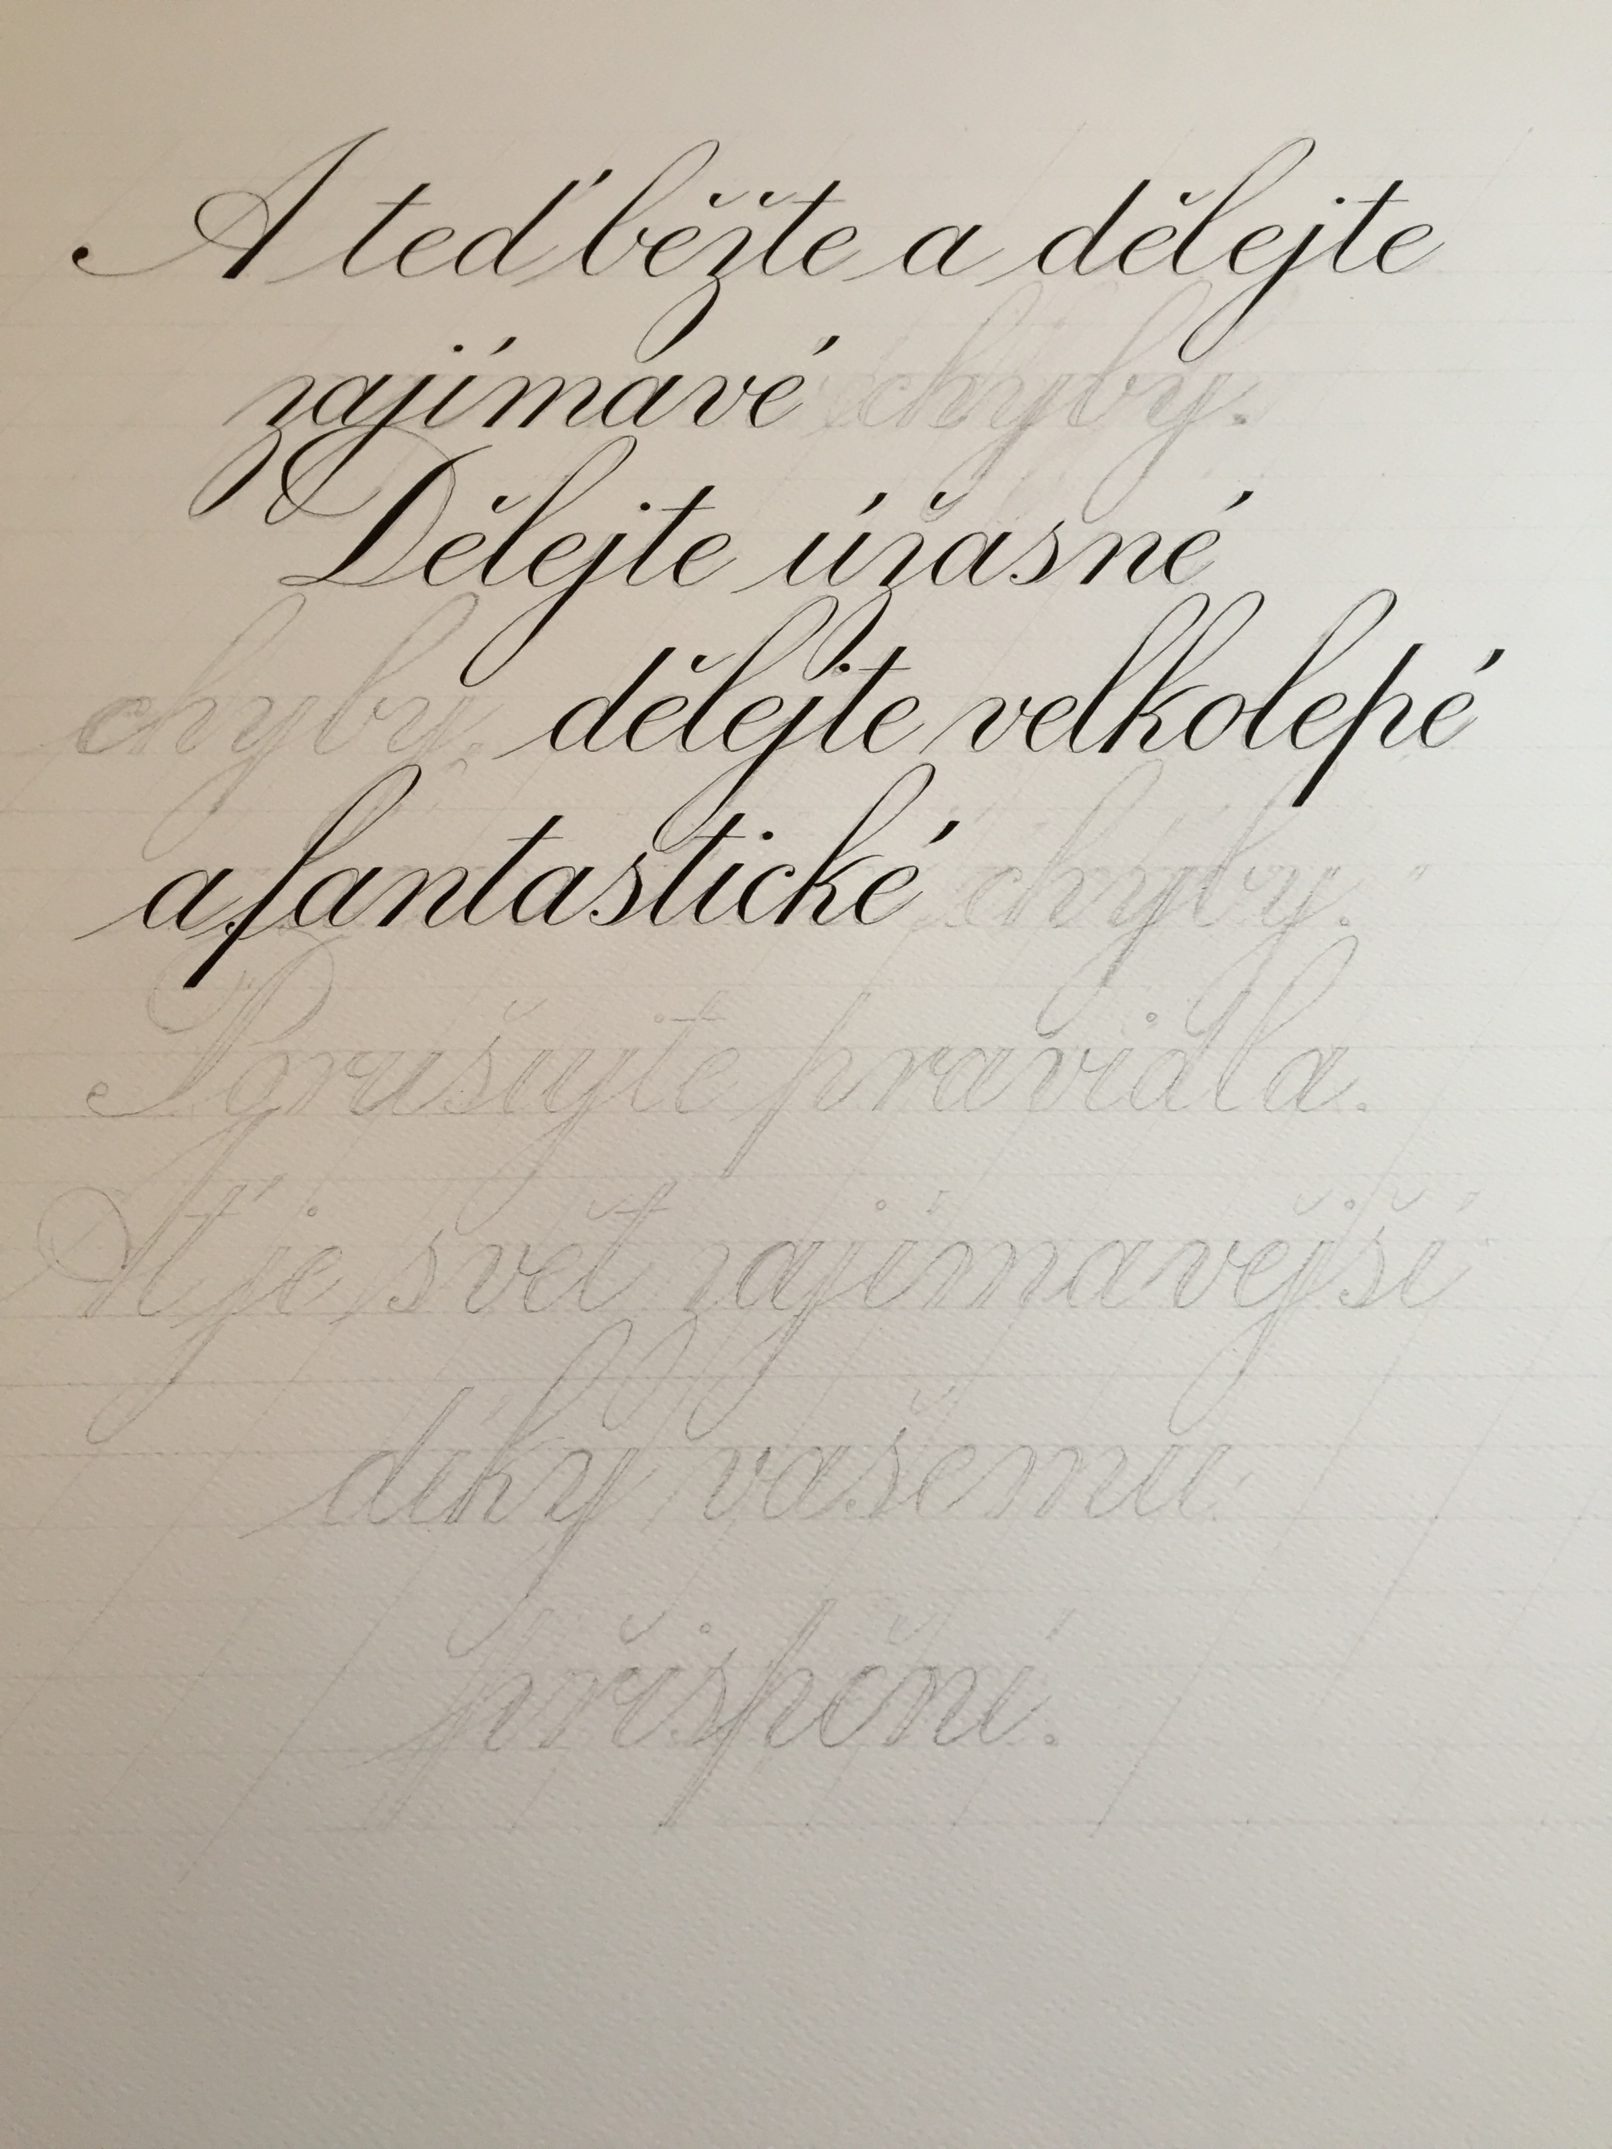 A teď běžte a dělejte
zajímavé chyby.
Dělejte úžasné
chyby, dělejte velkolepé
a fantastické chyby."
Porušujte pravidla.
Ať je svět zajímavější
díky vašemu
přispění.